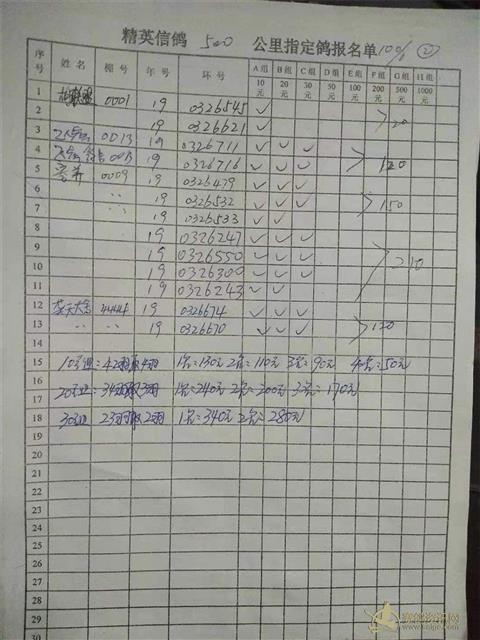 精英信鸽 500 公里指定鸽报名单 10% ②
序号 姓名 棚号 年号 环号 A组 B组 C组 D组 E组 F组 G组 H组
10元 20元 30元 50元 100元 200元 500元 1000元
1 0001 19 0326545 ✓
2 19 0326621 ✓ >20
3 0013 19 0326711 ✓ ✓ ✓
4 0013 19 0326716 ✓ ✓ ✓ >120
5 0009 19 0326479 ✓ ✓ ✓
6 〃 19 0326532 ✓ ✓ ✓ >150
7 〃 19 0326533 ✓ ✓
8 19 0326247 ✓ ✓ ✓
9 19 0326550 ✓ ✓ ✓ >210
10 19 0326300 ✓ ✓ ✓
11 19 0326243 ✓ ✓
12 4444 19 0326674 ✓ ✓ ✓
13 〃 〃 19 0326670 ✓ ✓ ✓ >120
14
15 10元组:42羽取4羽 1名=130元 2名=110元 3名=90元 4名=50元
16
17 20元组:34羽取3羽 1名=240元 2名=200元 3名=170元
18 30元组 23羽取2羽 1名=340元 2名=280元
19
20
21
22
23
24
25
26
27
28
29
30